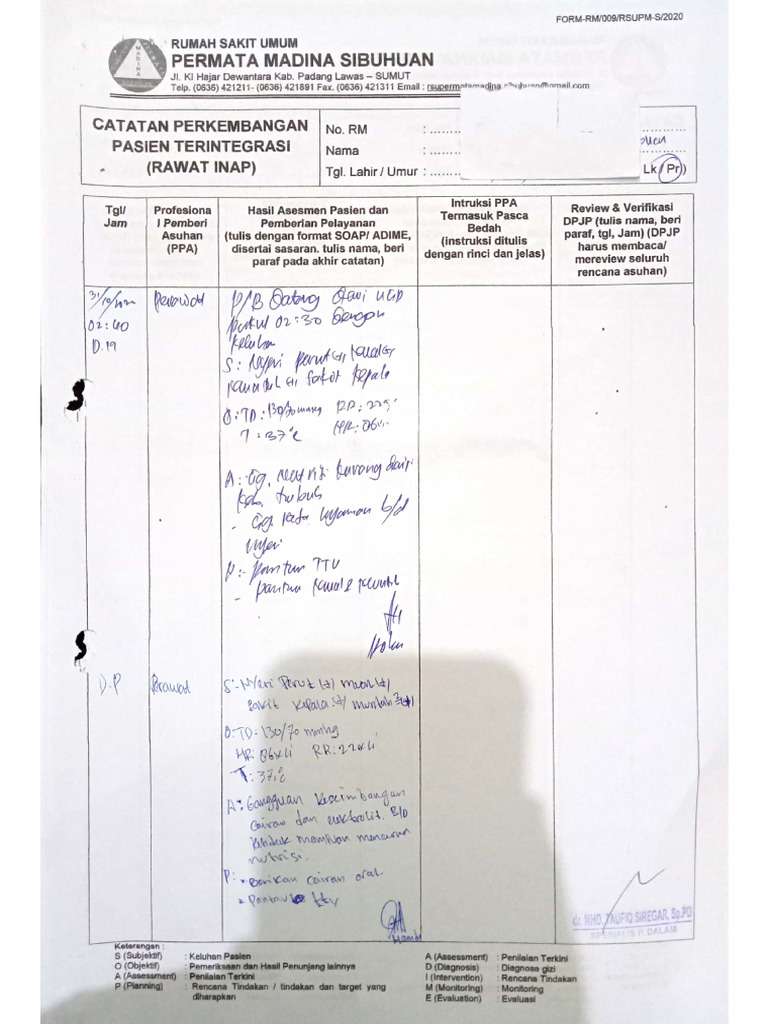 FORM-RM/009/RSUPM-S/2020
MADINA
RUMAH SAKIT UMUM
PERMATA MADINA SIBUHUAN
Jl. Ki Hajar Dewantara Kab. Padang Lawas – SUMUT
Telp. (0636) 421211- (0636) 421891 Fax. (0636) 421311 Email : rsupermatamadina.sibuhuan@gmail.com
CATATAN PERKEMBANGAN
PASIEN TERINTEGRASI
(RAWAT INAP)
No. RM :
Nama :
Tgl. Lahir / Umur : Lk / Pr )
Tgl/
Jam
Profesiona
l Pemberi
Asuhan
(PPA)
Hasil Asesmen Pasien dan
Pemberian Pelayanan
(tulis dengan format SOAP/ ADIME,
disertai sasaran. tulis nama, beri
paraf pada akhir catatan)
Intruksi PPA
Termasuk Pasca
Bedah
(instruksi ditulis
dengan rinci dan jelas)
Review & Verifikasi
DPJP (tulis nama, beri
paraf, tgl, Jam) (DPJP
harus membaca/
mereview seluruh
rencana asuhan)
31/10/
02:40
D.19
perawat
P/B Datang Dari UGD
pukul 02:30 Dengan
keluhan
S: Nyeri perut
sakit kepala
O: TD: 130/70 mmHg RR: 22
T: 37°C HR:
A: Gg. Nutrisi kurang dari
keb. tubuh
- Gg. rasa nyaman b/d
nyeri
P: - pantau TTV
- pantau
D.P.
Perawat
S: Nyeri Perut (+) mual (+)
sakit kepala (+) muntah
O: TD: 130/70 mmHg
HR: RR: 22x/i
T: 37°C
A: Gangguan keseimbangan
cairan dan elektrolit B/D
mencerna
nutrisi.
P: Berikan cairan oral
Pantau ttv
dr. MHD. TAUFIQ SIREGAR, Sp.PD
SPESIALIS P. DALAM
Keterangan :
S (Subjektif) : Keluhan Pasien
O (Objektif) : Pemeriksaan dan Hasil Penunjang lainnya
A (Assessment) : Penilaian Terkini
P (Planning) : Rencana Tindakan / tindakan dan target yang
diharapkan
A (Assessment) : Penilaian Terkini
D (Diagnosis) : Diagnosa gizi
I (Intervention) : Rencana Tindakan
M (Monitoring) : Monitoring
E (Evaluation) : Evaluasi